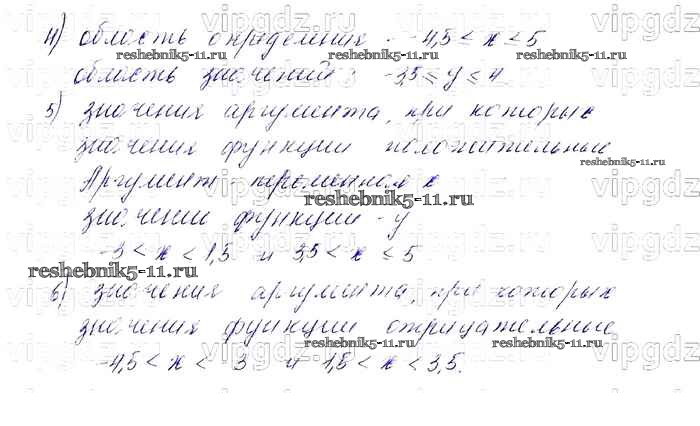 4) область определения - -4,5 ≤ x ≤ 5
область значений: -3,5 ≤ y ≤ 4
5) значения аргумента, при которых
значения функции положительные
Аргумент - переменная x
значении функции - y
-3 < x < 1,5 и 3,5 < x ≤ 5
6) значения аргумента, при которых
значения функции отрицательные
-4,5 < x < 3 и 1,5 < x < 3,5.
reshebnik5-11.ru
reshebnik5-11.ru
reshebnik5-11.ru
reshebnik5-11.ru
reshebnik5-11.ru
reshebnik5-11.ru
reshebnik5-11.ru
vipgdz